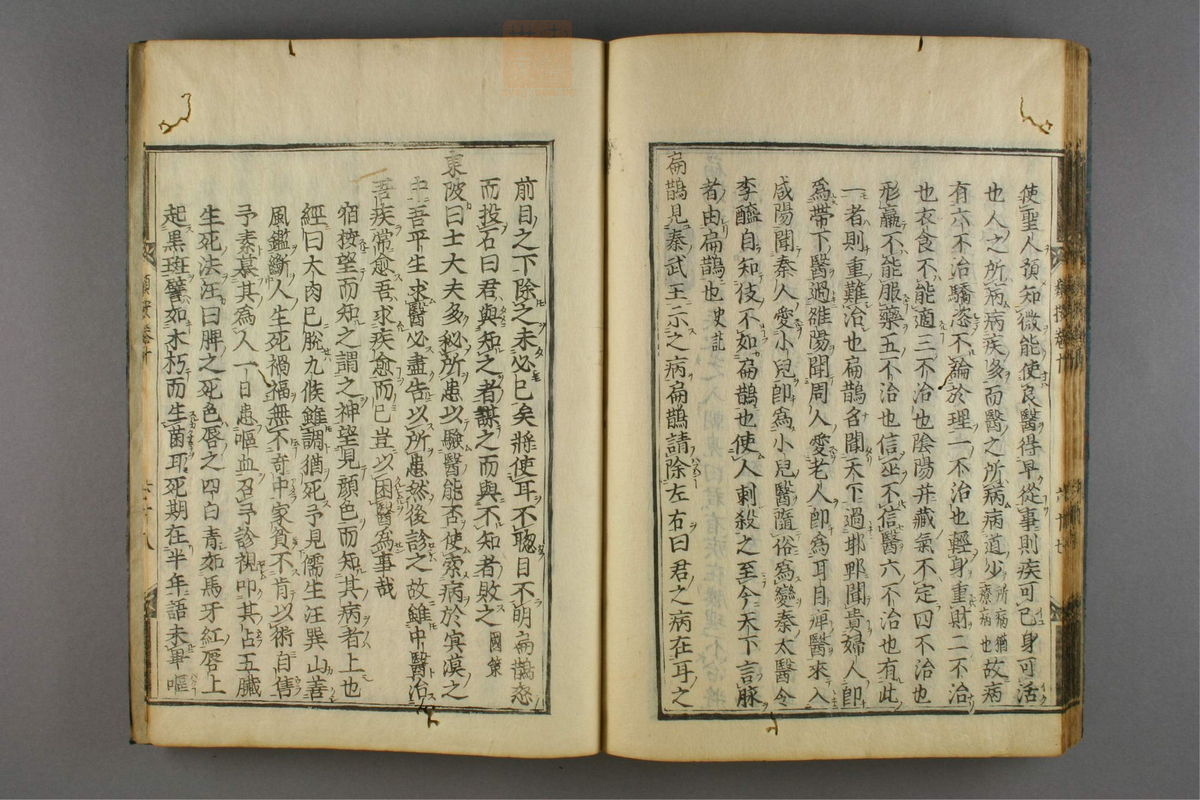 使聖人預知微能使良醫得早從事則疾可已身可活
也人之所病病疾多而醫之所病病道少所病猶療病也故病
有六不治驕恣不論於理一不治也輕身重財二不治
也衣食不能適三不治也陰陽并藏氣不定四不治也
形羸不能服藥五不治也信巫不信醫六不治也有此
一者則重難治也扁鵲名聞天下過邯鄲聞貴婦人即
爲帶下醫過雒陽聞周人愛老人即爲耳目痺醫來入
咸陽聞秦人愛小兒即爲小兒醫隨俗爲變秦太醫令
李醯自知伎不如扁鵲也使人刺殺之至今天下言脉
者由扁鵲也史記
扁鵲見秦武王示之病扁鵲請除左右曰君之病在耳之
前目之下除之未必已矣將使耳不聰目不明扁鵲怒
而投石曰君與知之者謀之而與不知者敗之國策
東陂曰士大夫多秘所患以驗醫能否使索病於冥漠之
中吾平生求醫必盡告以所患然後診之故雖中醫治
吾疾常愈吾求疾愈而已豈以困醫爲事哉
宿按望而知之謂之神望見顏色而知其病者上也
經曰大肉已脫九候雖調猶死予見儒生汪巽山善
風鑑斷人生死禍福無不奇中家貧不肯以術自售
予素慕其為人一日患嘔血召予診視叩其占五臟
生死法汪曰脾之死色唇之四白青如馬牙紅唇上
起黑斑譬如木朽而生菌耳死期在半年語未畢嘔